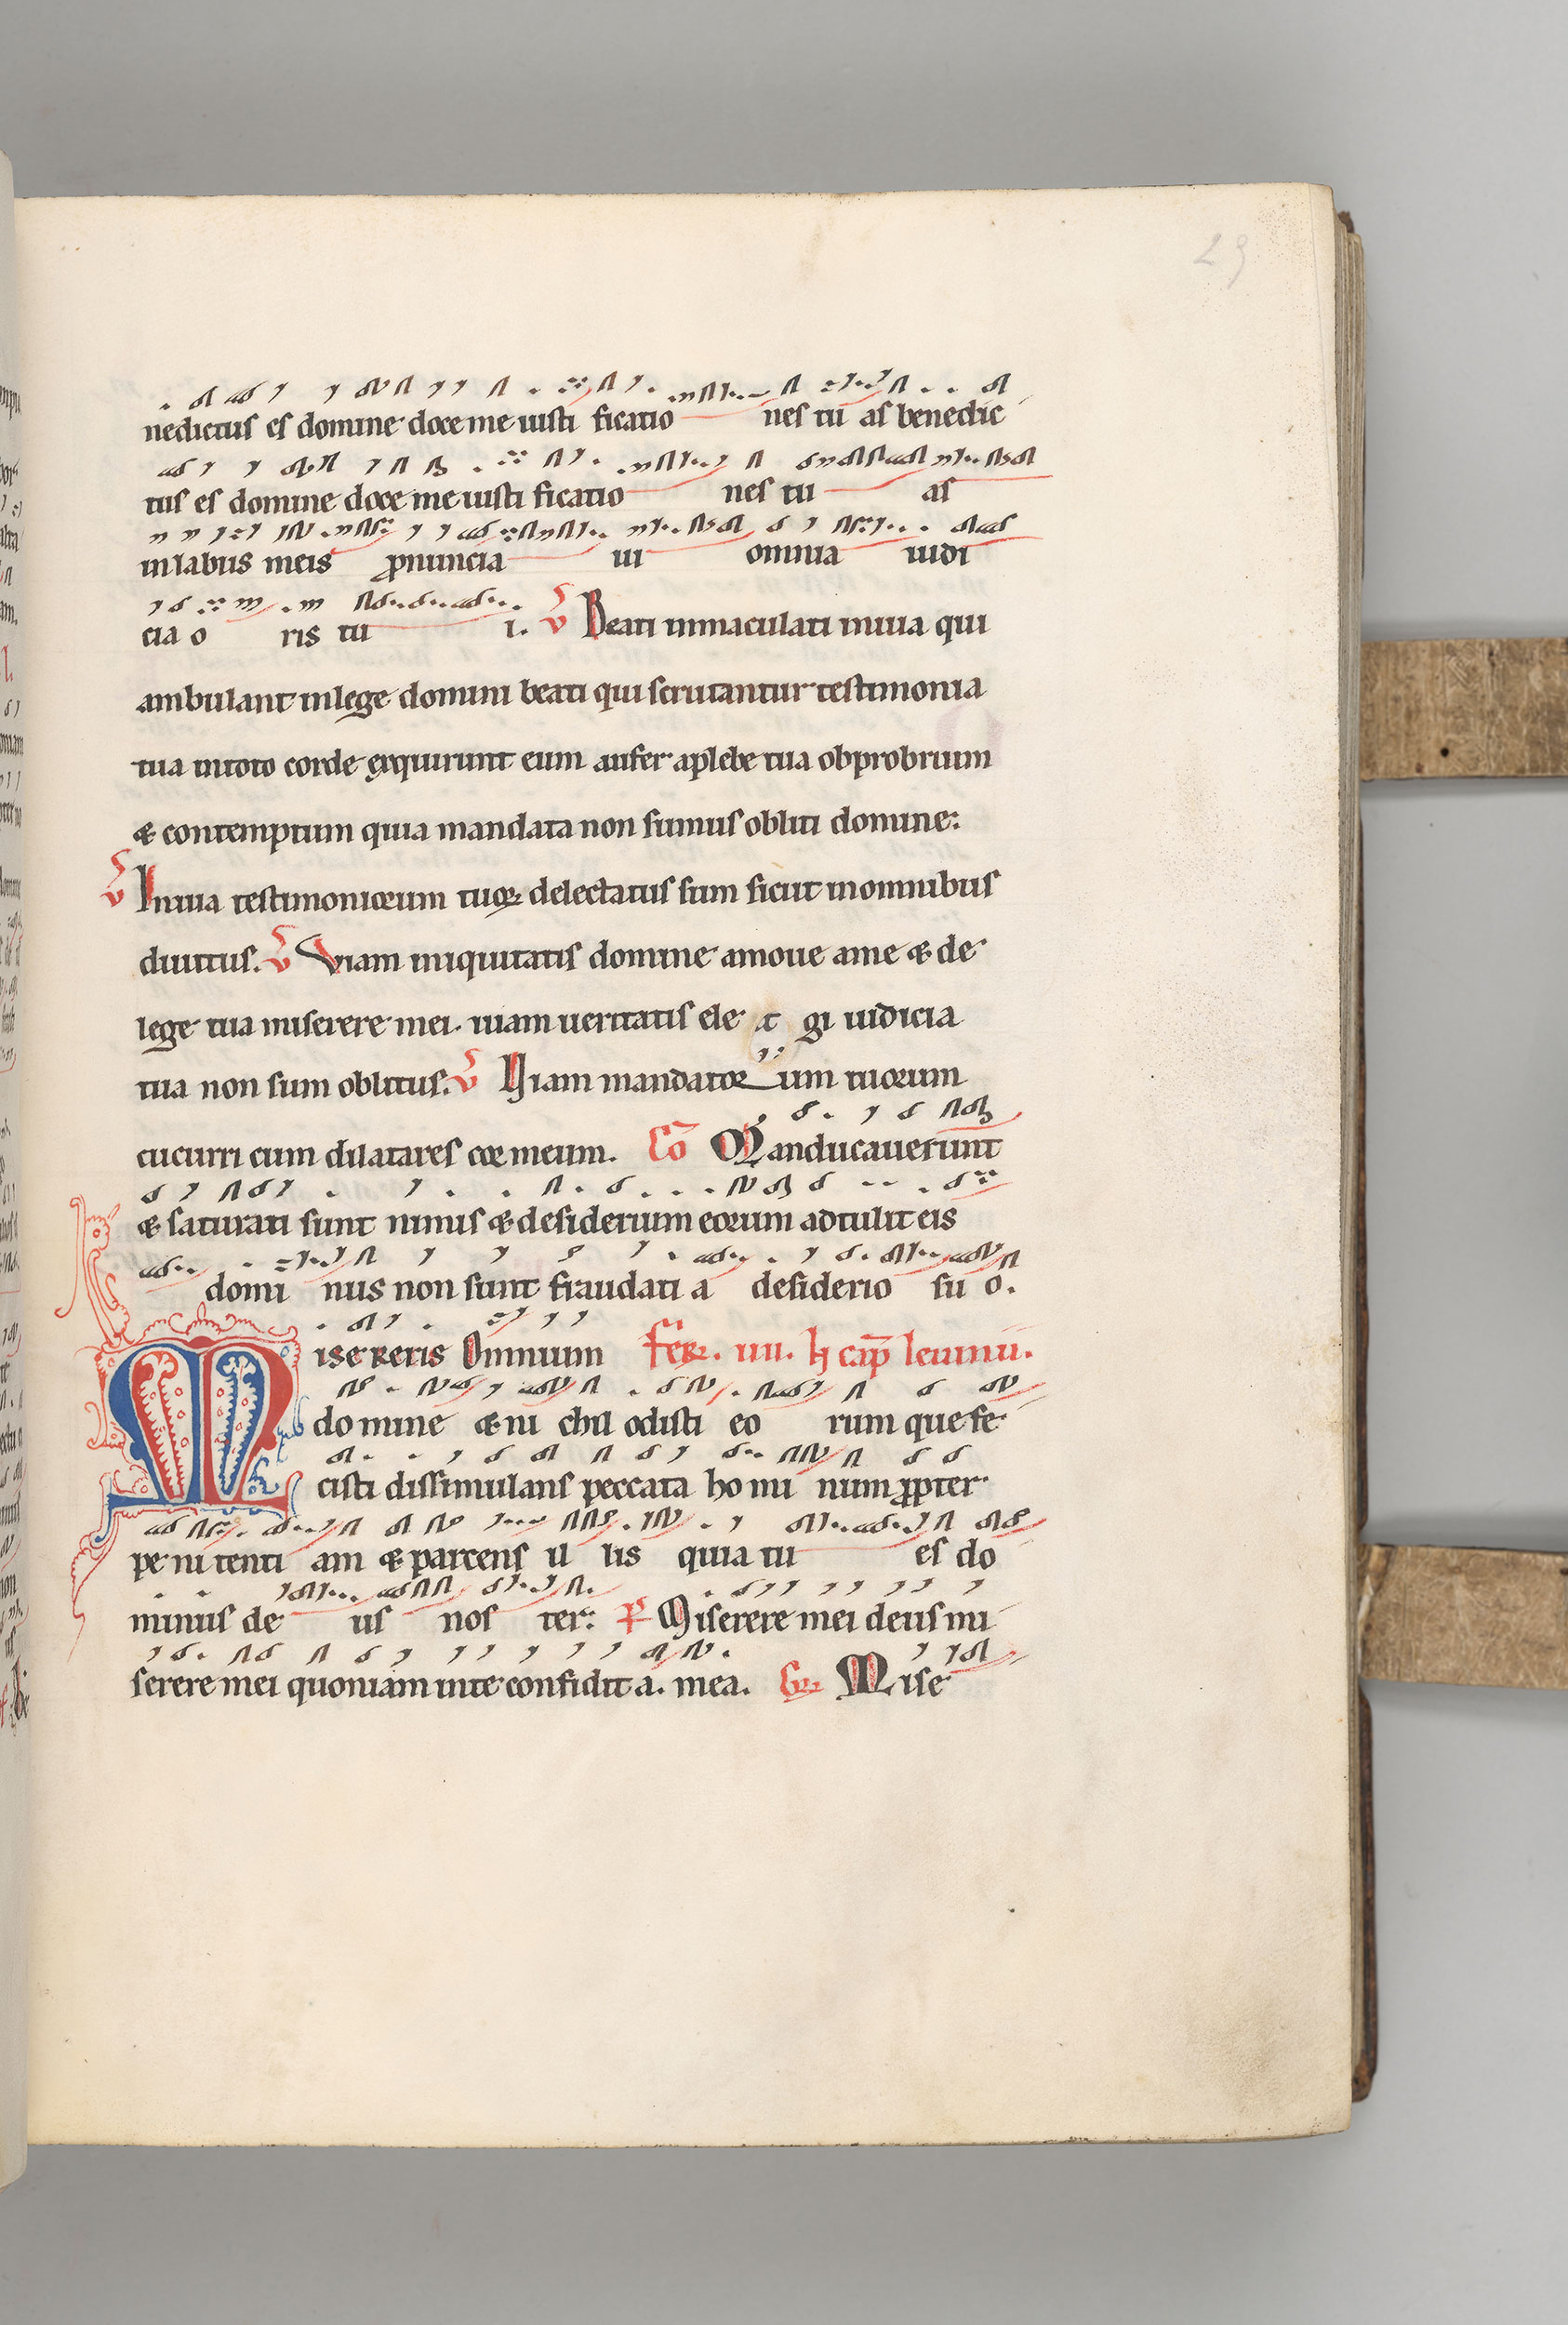 29
nedictus es domine doce me iusti ficatio nes tu as benedic
tus es domine doce me iusti ficatio nes tu as
in labiis meis ꝓnuncia ui omnia iudi
cia o ris tu i. V̄ Beati inmaculati in uia qui
ambulant in lege domini beati qui scrutantur testimonia
tua in toto corde exquirunt eum aufer a plebe tua obprobrium
& contemptum quia mandata non sumus obliti domine:
V̄ In uia testimoniorum tuoꝝ delectatus sum sicut in omnibus
diuitiis. V̄ Viam iniquitatis domine amoue a me & de
lege tua miserere mei. uiam ueritatis ele gi iudicia
tua non sum oblitus. V̄ Viam mandator um tuorum
cucurri cum dilatares cor meum. Co̅ Manducauerunt
& saturati sunt nimis & desiderium eorum adtulit eis
domi nus non sunt fraudati a desiderio su o.
Misereris Omnium Fer. IIII. h cap̄ Ieiunii.
domine & ni chil odisti eo rum que fe
cisti dissimulans peccata ho mi num ꝓpter
pe ni tenti am & parcens il lis quia tu es do
minus de us nos ter: Ps Miserere mei deus mi
serere mei quoniam in te confidit a. mea. Gr̄ Mise